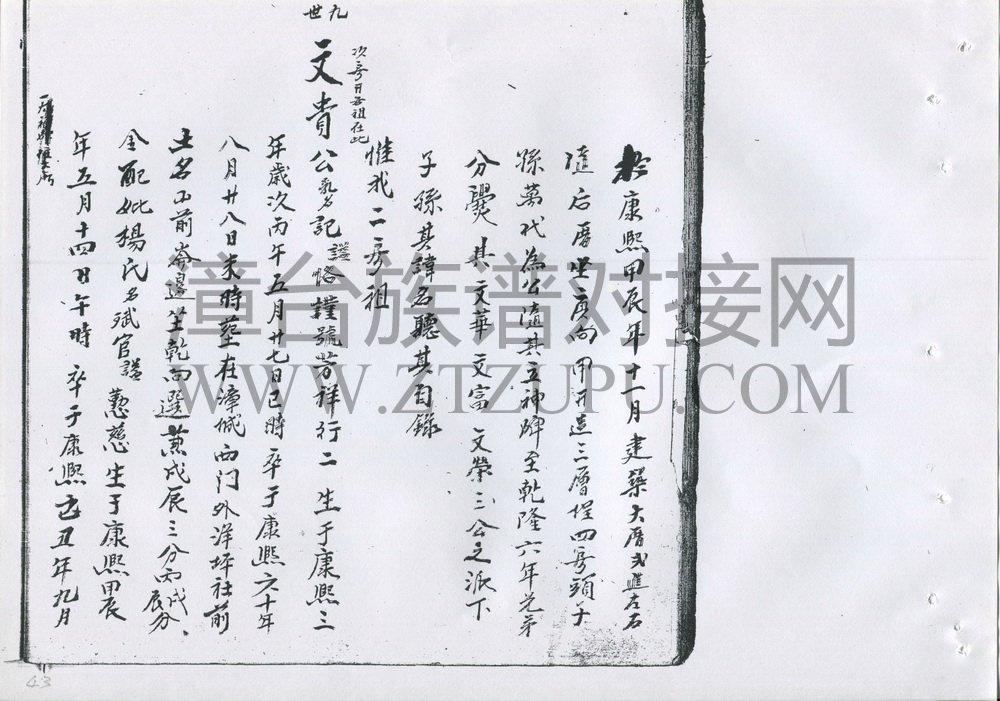 於康熙甲辰年十一月建築大厝弍進左右
隨后厝坐庚向甲开造三層埕四房頭子
孫萬代為公隨其立神牌至乾隆六年兄弟
分爨其文華文富文榮三公之派下
子孫其諱名聽其自錄
惟我二房祖
次房开基祖在此
九世
文貴公乳名記諡恪謹號芳祥行二生于康熙三
年歲次丙午五月廿七日巳時卒于康熙六十年
八月廿八日未時塟在漳城西门外洋坪社前
土名 前崙邊坐乾向選兼戌辰三分丙戌丙辰分
金配妣楊氏名斌官諡慈生于康熙甲辰
年五月十四日午時卒于康熙己丑年九月
43
章台族谱对接网
WWW.ZTZUPU.COM